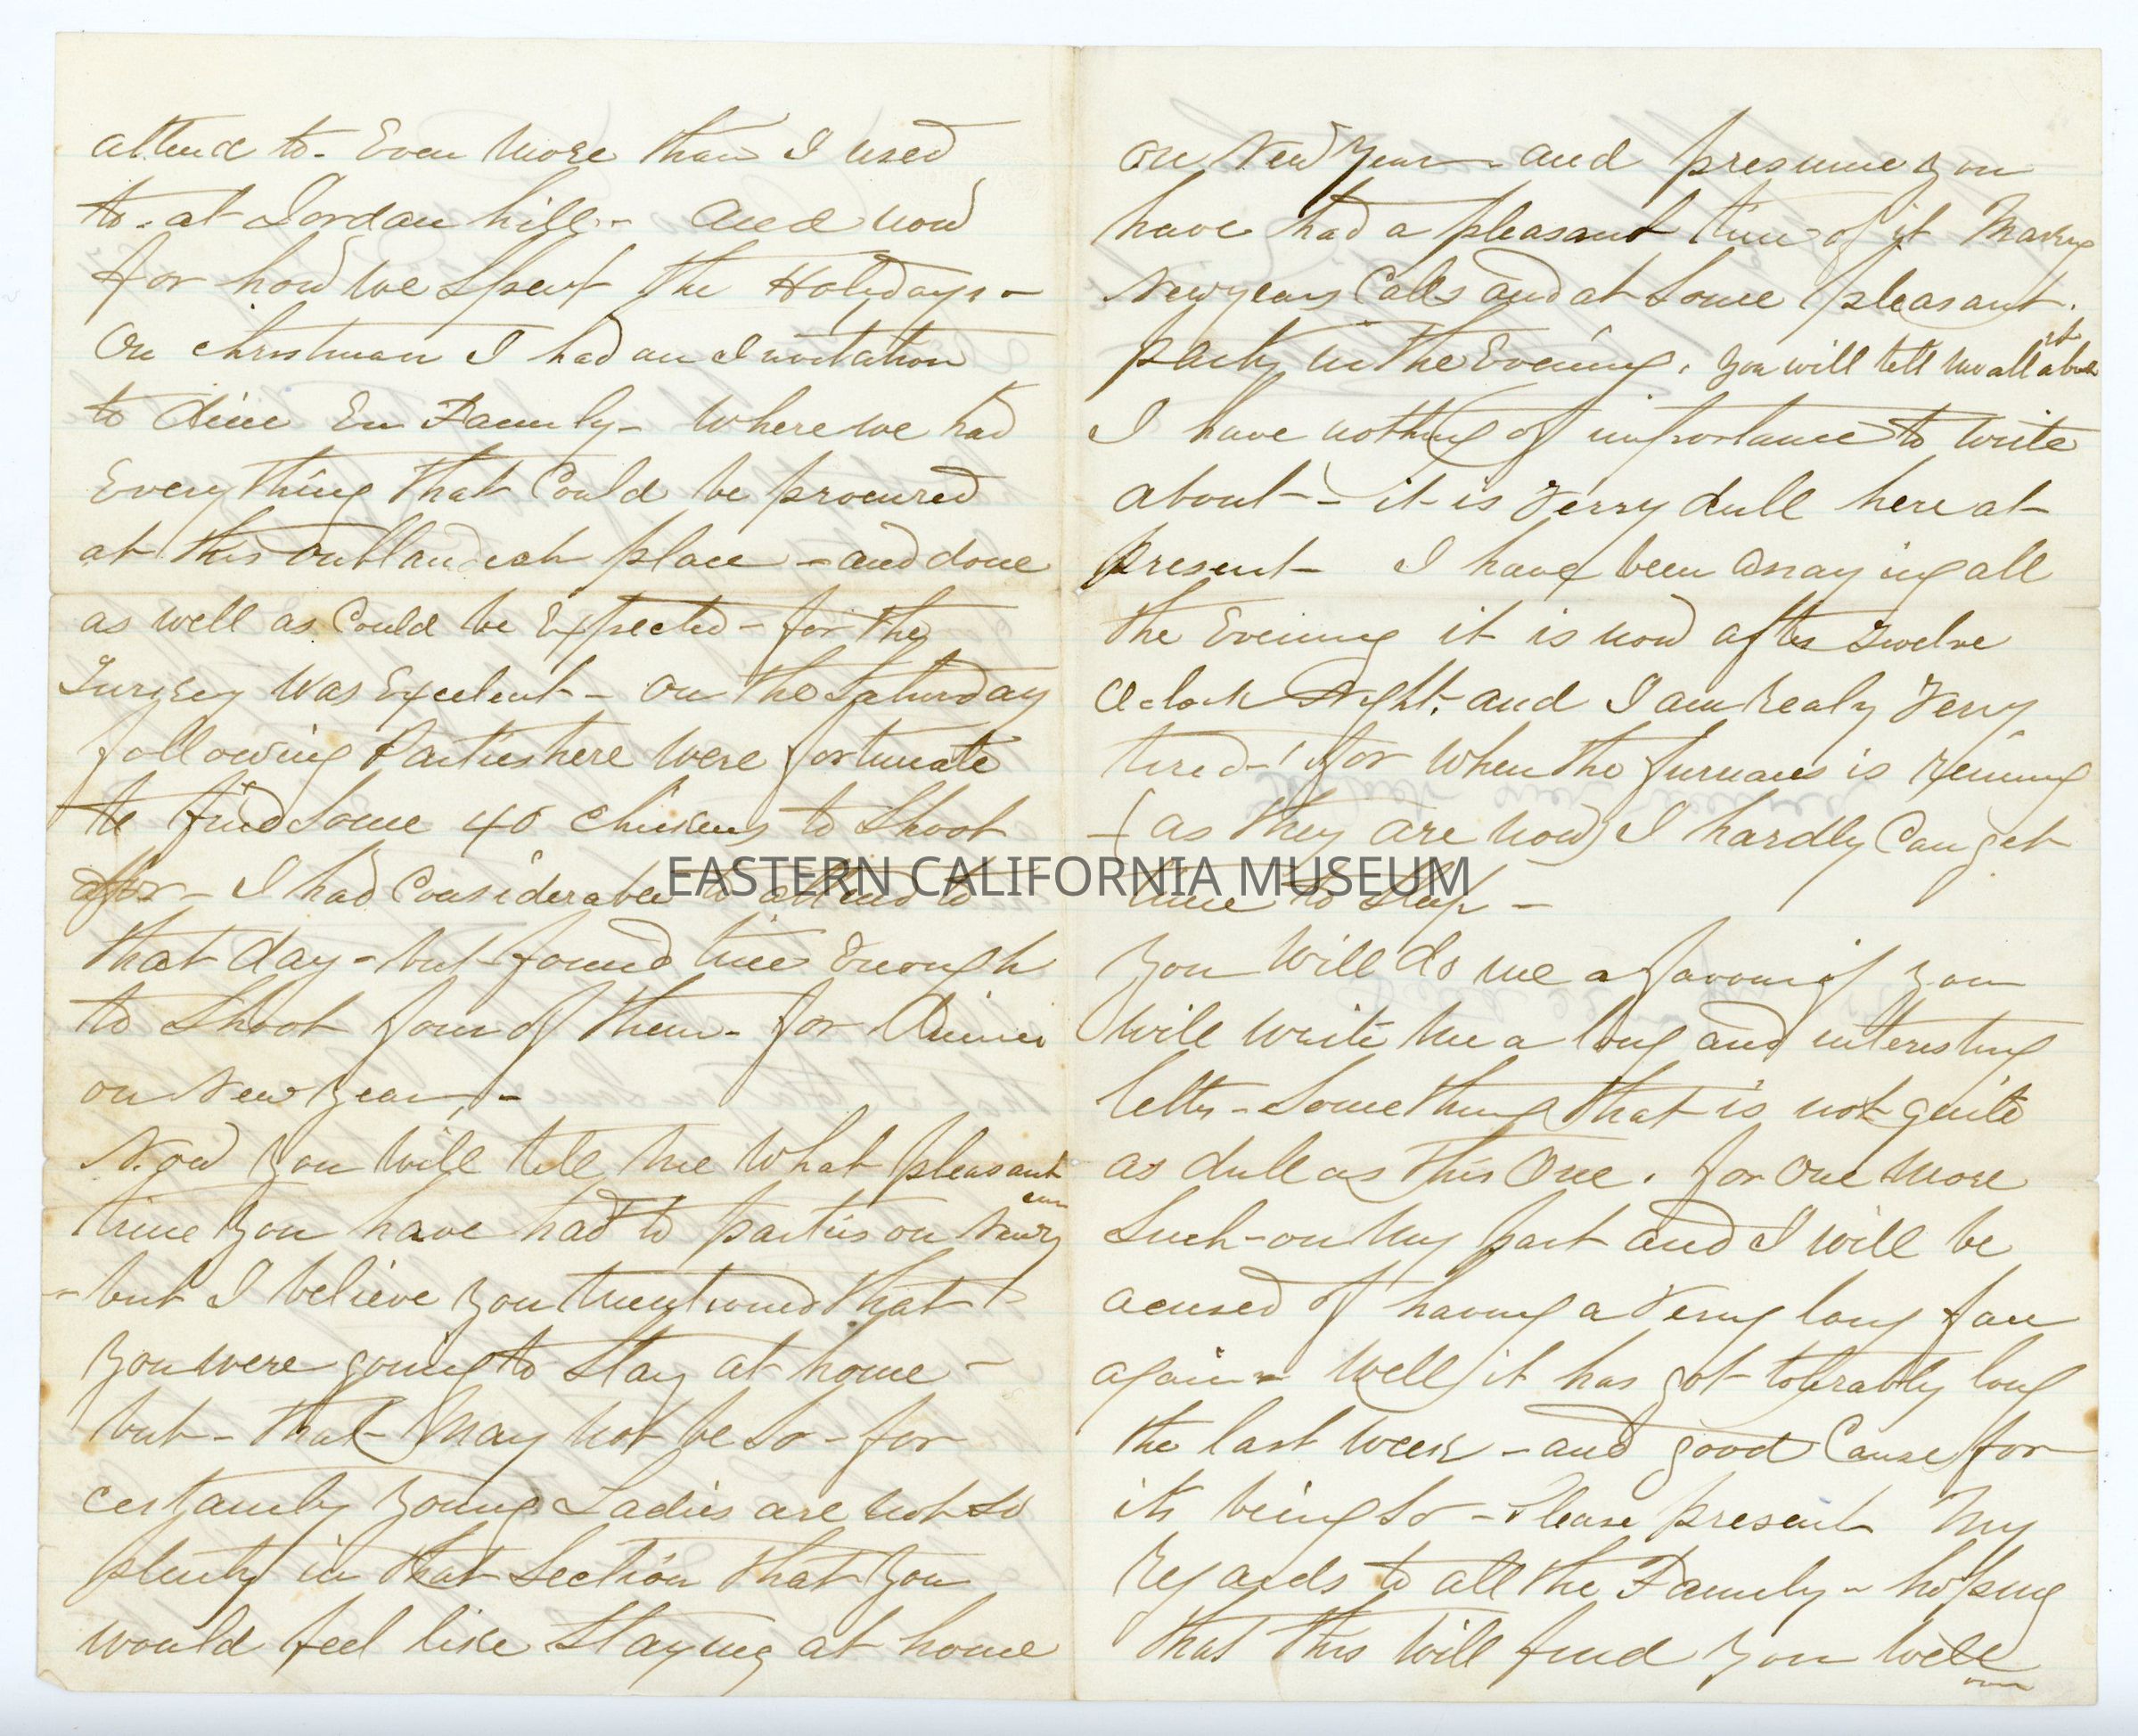 attend to - Even More than I used
to - at Jordan hill - And now
for how we Spent the Holydays -
On christman I had an Invitation
to dine En Family - Where we had
Everything that Could be procured
at this outlandish place - and done
as well as Could be Expected - for the
Turkey Was Excelent - on the Saturday
following Parties here Were fortunate
to find Some 40 Chickens to Shoot
after - I had Considerable to attend to
that day - but found time Enough
to Shoot four of them - for Dinner
on New Year, -
Now You Will tell Me What pleasant
time You have had to parties on Newyear
- but I believe You mentioned that
You were going to Stay at home -
but - that May Not be So - for
certainly Young Ladies are not so
plenty in that Section that You
would feel like Staying at home
on New Year - and presume You
have had a pleasant time of it Making
Newyears Calls and at Some pleasant
party in the Evening. You will tell Me all about it
I have nothing of importance to write
about - it is Verry dull here at
present - I have been assaying all
the Evening it is now after twelve
Oclock Night. and I am realy Verry
tired - for When the furnaces is runing
- (as they are now) I hardly Can get
time to Sleep -
You Will do me a favour if You
Will Write Me a long and interesting
letter - Something that is not quite
as dull as this One. for one More
Such - on My part and I will be
acused of having a Verry long face
again - Well it has got tolerably long
the last Week - and good Cause for
its being So - Please present My
Regards to all the Family - hoping
that this Will find You Well
EASTERN CALIFORNIA MUSEUM